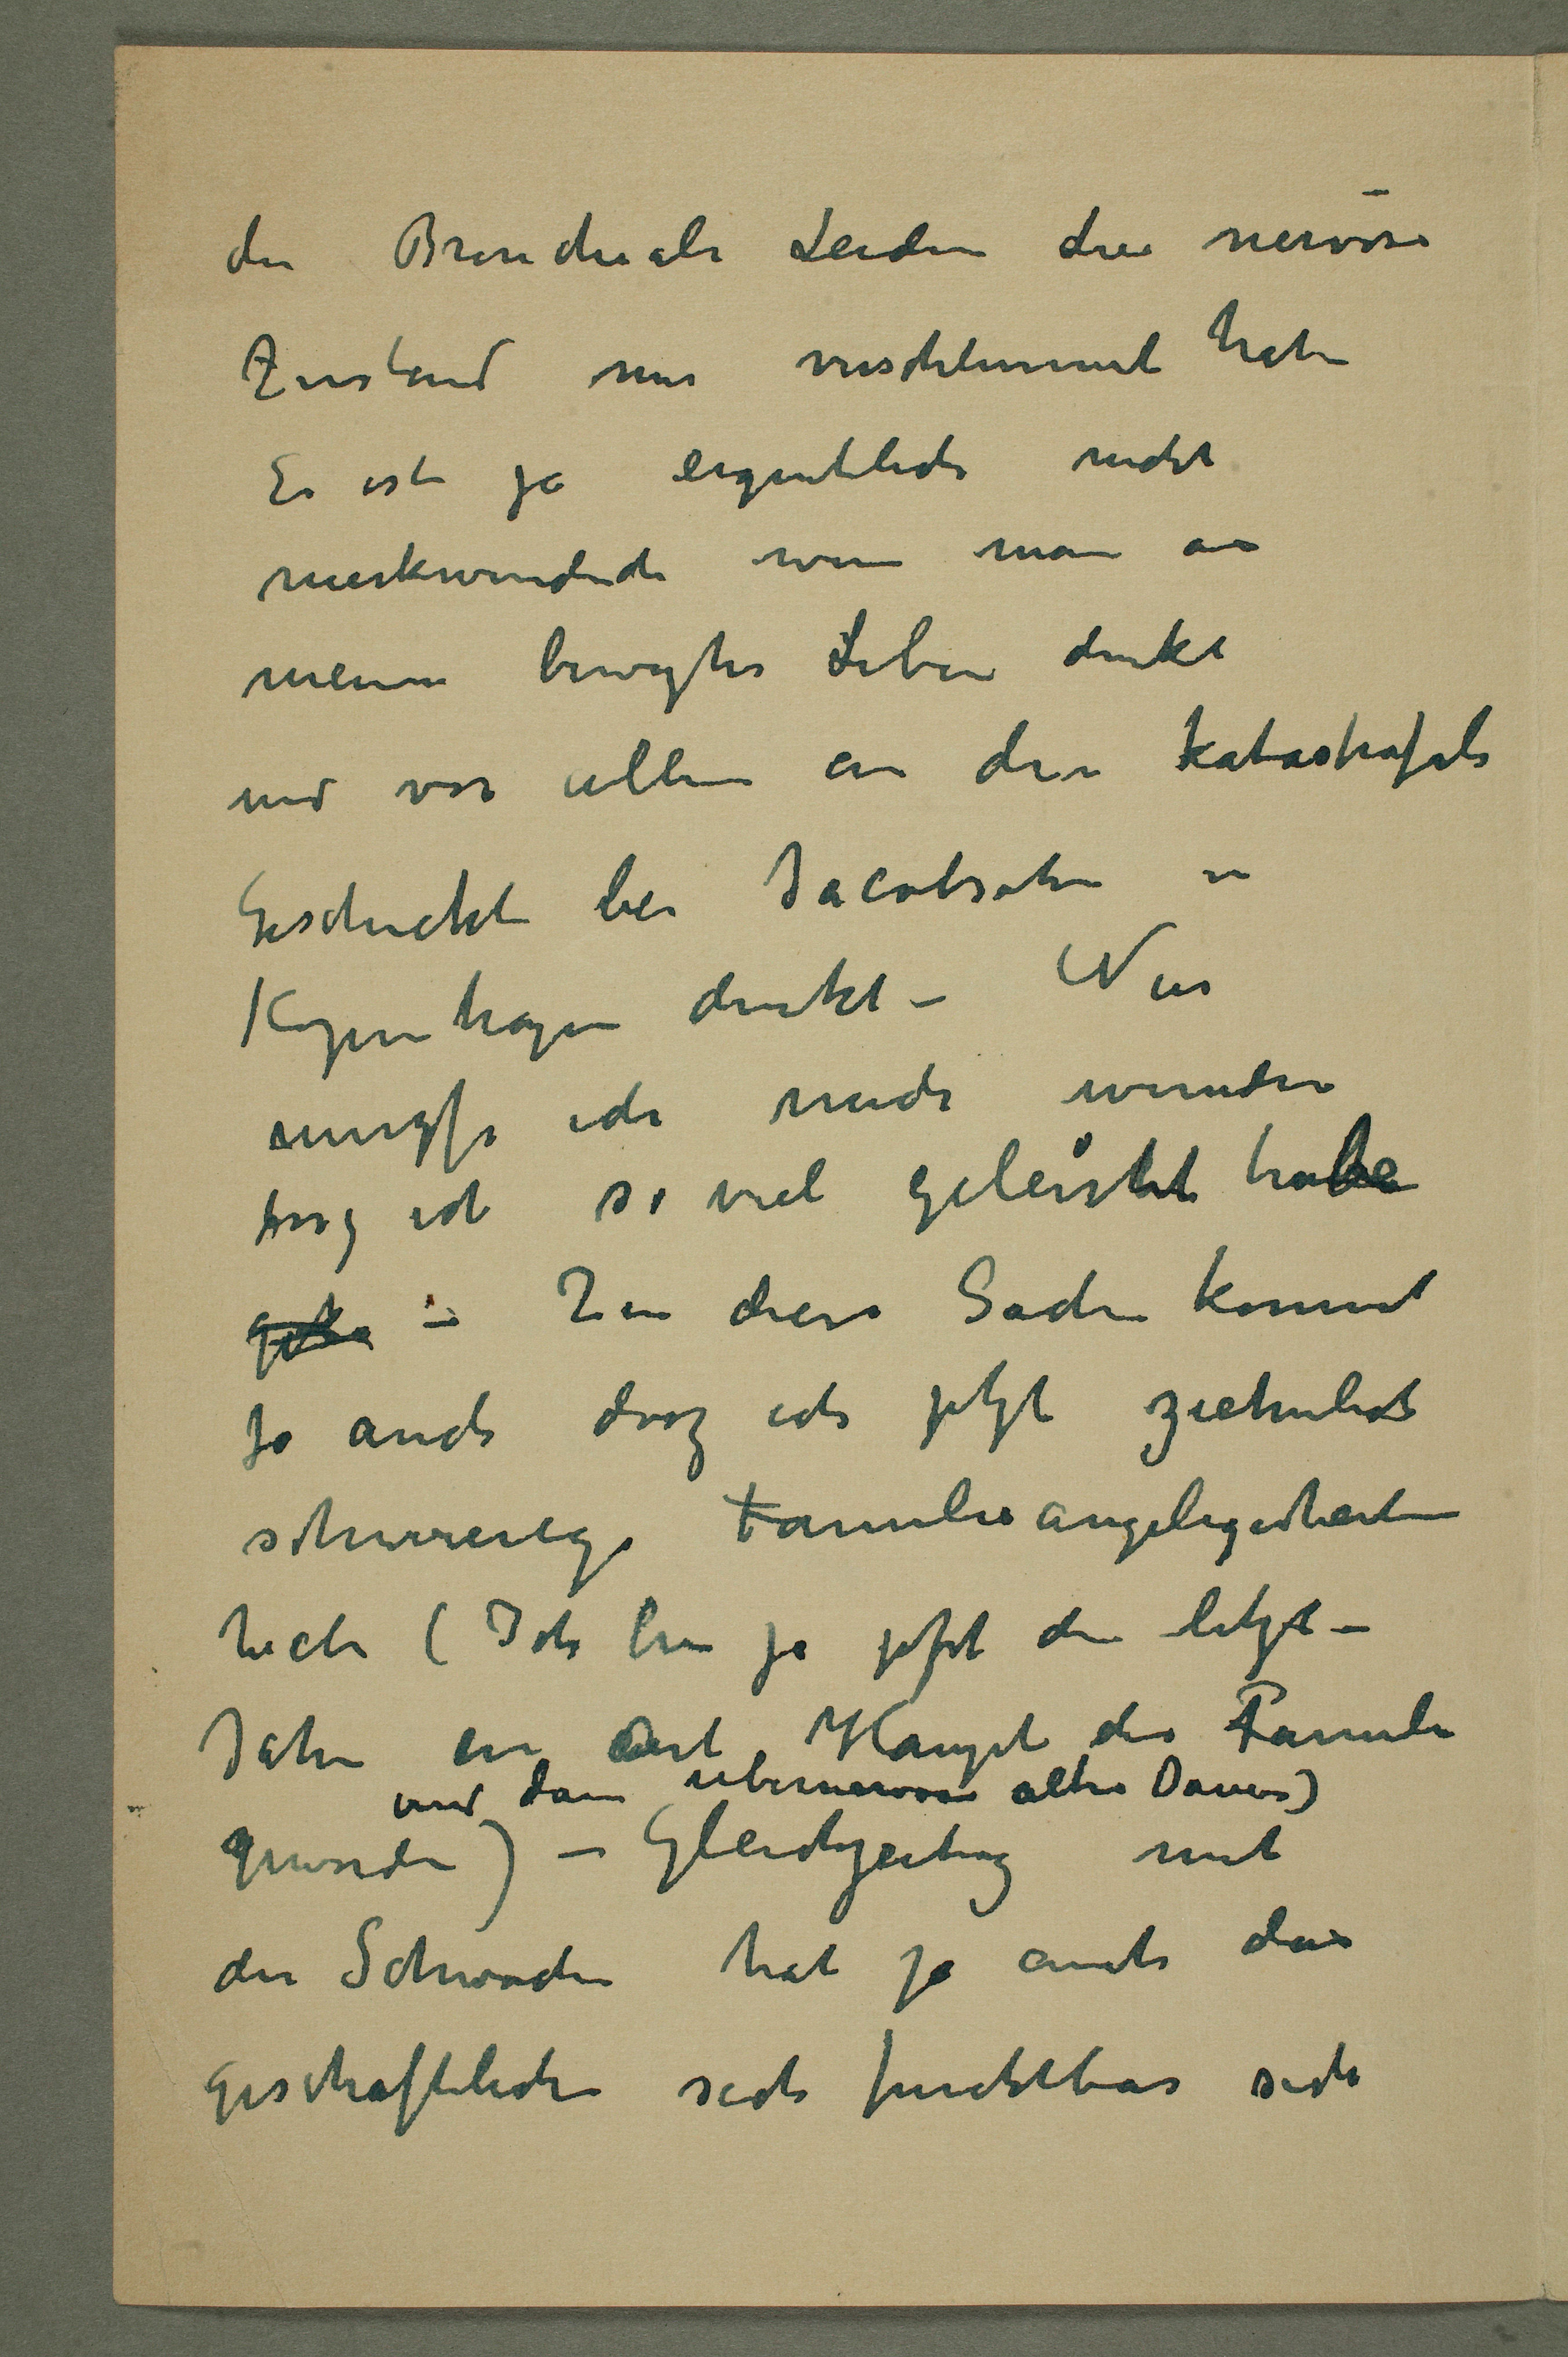 der Bronchiale Leiden die nervöse
Zustand nur verschlimmert hat
Es ist ja eigentlich nicht
merkwürdich wenn man an
meine bewegtes Leben denkt
und vor allem an die katastrofale
Geschichte bei Jacobsohn in
Kopenhagen denkt – Nur
muss ich mich wundern
dass ich so viel geleistet habe
– Zu diese Sachen kommt
ja auch dass ich jetzt ziehmlich
schwierige Familieangelegenheiten
habe (Ich bin ja jetzt die letzte
Jahre ein Art Haupt der Familie
und dann übernervose alte Damen)
geworden) – Gleichzeitig mit
der Schwäche hat ja auch das
geschäftliche sich furchtbar sich